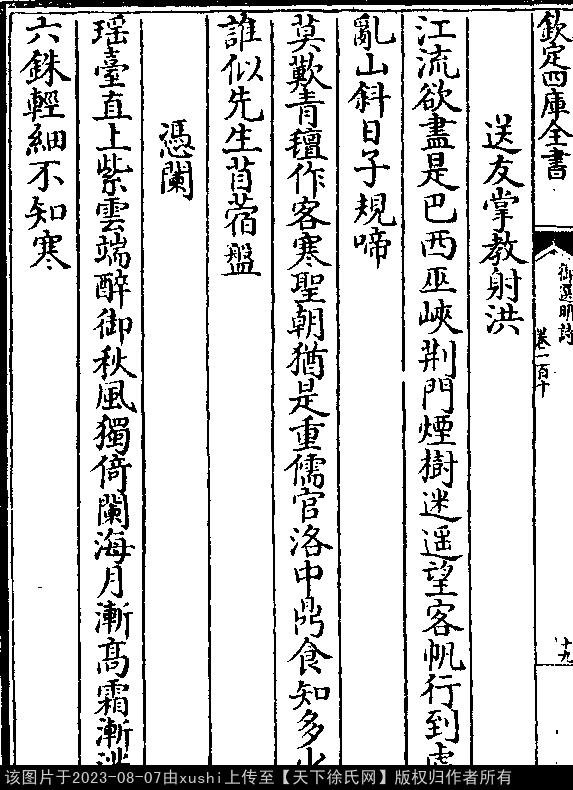 欽定四庫全書
御選明詩
卷一百十
十九
送友掌教射洪
江流欲盡是巴西巫峽荆門煙樹迷遥望客帆行到處
亂山斜日子規啼
莫歎青氊作客寒聖朝猶是重儒官洛中鼎食知多少
誰似先生苜蓿盤
憑闌
瑶臺直上紫雲端醉御秋風獨倚闌海月漸髙霜漸
六銖輕細不知寒
该图片于2023-08-07由xushi上传至【天下徐氏网】版权归作者所有